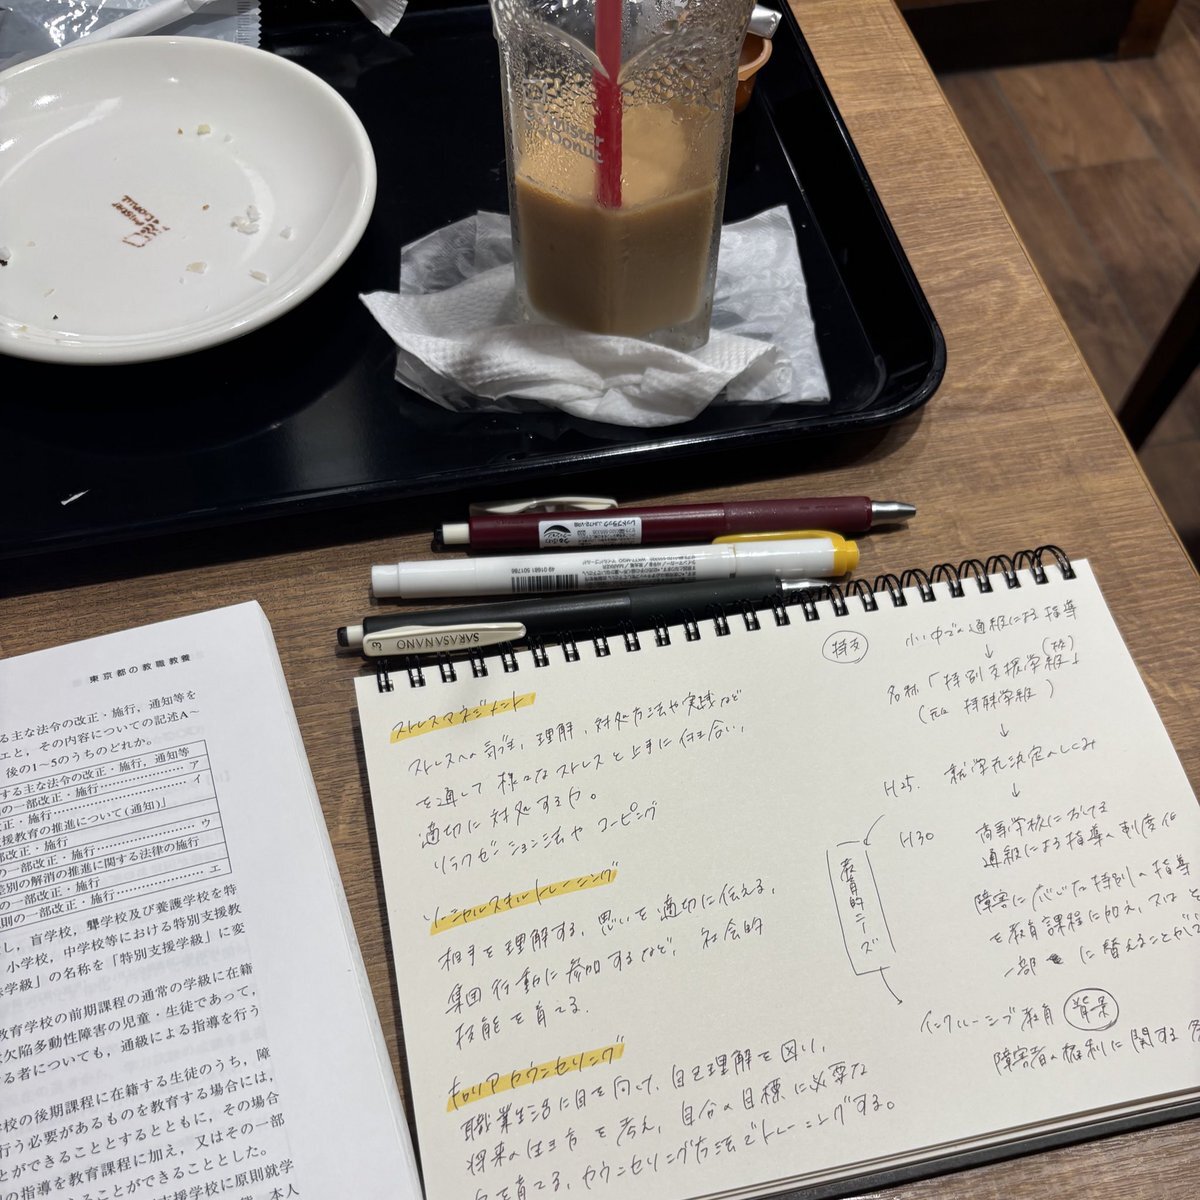 Mister
Donut
Mister
Donut
レッドブラック
49 01681 501786
SARASANANO
0.3
東京都の教職教養
る主な法令の改正・施行，通知等を
エと，その内容についての記述A～
後の1～5のうちのどれか。
する主な法令の改正・施行，通知等
の一部改正・施行 ア
改正・施行 イ
支援教育の推進について(通知)」
部改正・施行 ウ
の一部改正・施行
差別の解消の推進に関する法律の施行
の一部改正・施行
則の一部改正・施行 エ
し，盲学校，聾学校及び養護学校を特
小学校，中学校等における特別支援教
学級」の名称を「特別支援学級」に変
教育学校の前期課程の通常の学級に在籍
欠陥多動性障害の児童・生徒であって，
る者についても，通級による指導を行う
学校の後期課程に在籍する生徒のうち，障
行う必要があるものを教育する場合には，
とができることとするとともに，その場合
の指導を教育課程に加え，又はその一部
ることができることとした。
支援学校に原則就学
本人
ストレスマネジメント
ストレスへの気づき，理解，対処方法や実践など
を通して様々なストレスと上手に付き合い，
適切に対処する力。
リラクゼーション法や コーピング
ソーシャルスキルトレーニング
相手を理解する，思いを適切に伝える，
集団行動に参加するなど，社会的
技能を育てる．
キャリアカウンセリング
職業生活に目を向けて，自己理解を図り，
将来の生き方を考え，自分の目標に必要な
力を育てる，カウンセリング方法でトレーニングする。
特支
小・中での通級による指導
↓
名称「特別支援学級」
(校)
(元は 特殊学級)
↓
H25. 就学先決定のしくみ
↓
H30 高等学校における
通級による指導の制度化
障害に応じた特別の指導
を教育課程に加え，又は
一部に替えることができ
教育的ニーズ
インクルーシブ教育 背景
障害者の権利に関する